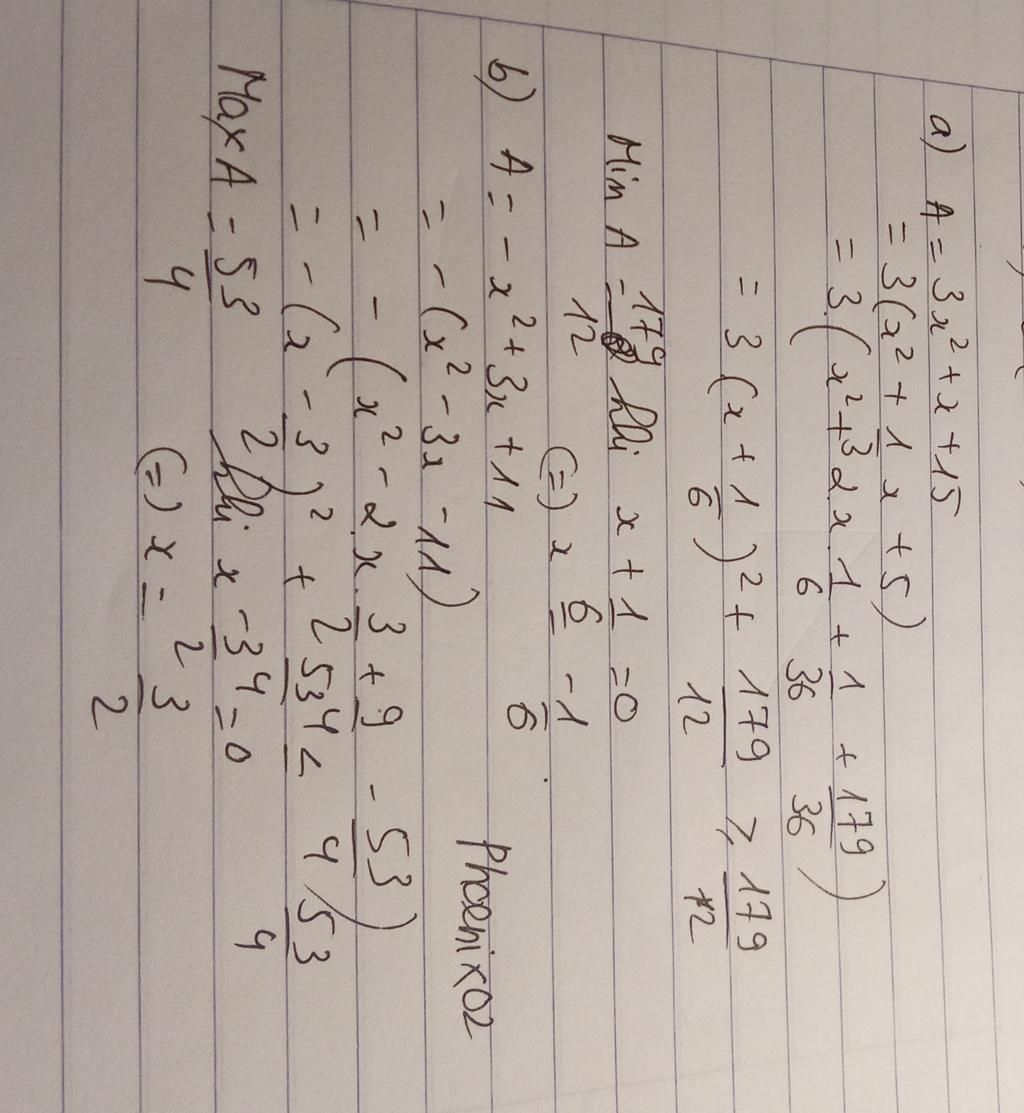 a) A = 3x² + x + 15
= 3(x² + 1/3 x + 5)
= 3.(x² + 2x.1/6 + 1/36 + 179/36)
= 3(x + 1/6)² + 179/12 ≥ 179/12
Min A = 179/12 khi x + 1/6 = 0
(=) x = -1/6
b) A = -x² + 3x + 11
= -(x² - 3x - 11)
= -(x² - 2x.3/2 + 9/4 - 53/4)
= -(x - 3/2)² + 53/4 ≤ 53/4
Max A = 53/4 khi x - 3/2 = 0
(=) x = 3/2
Phoenix02